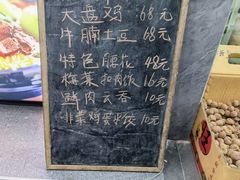 大盘鸡 68元
牛腩土豆 68元
特色腰花 48元
梅菜扣肉饭 16元
鲜肉云吞 10元
韭菜鸡蛋水饺 10元